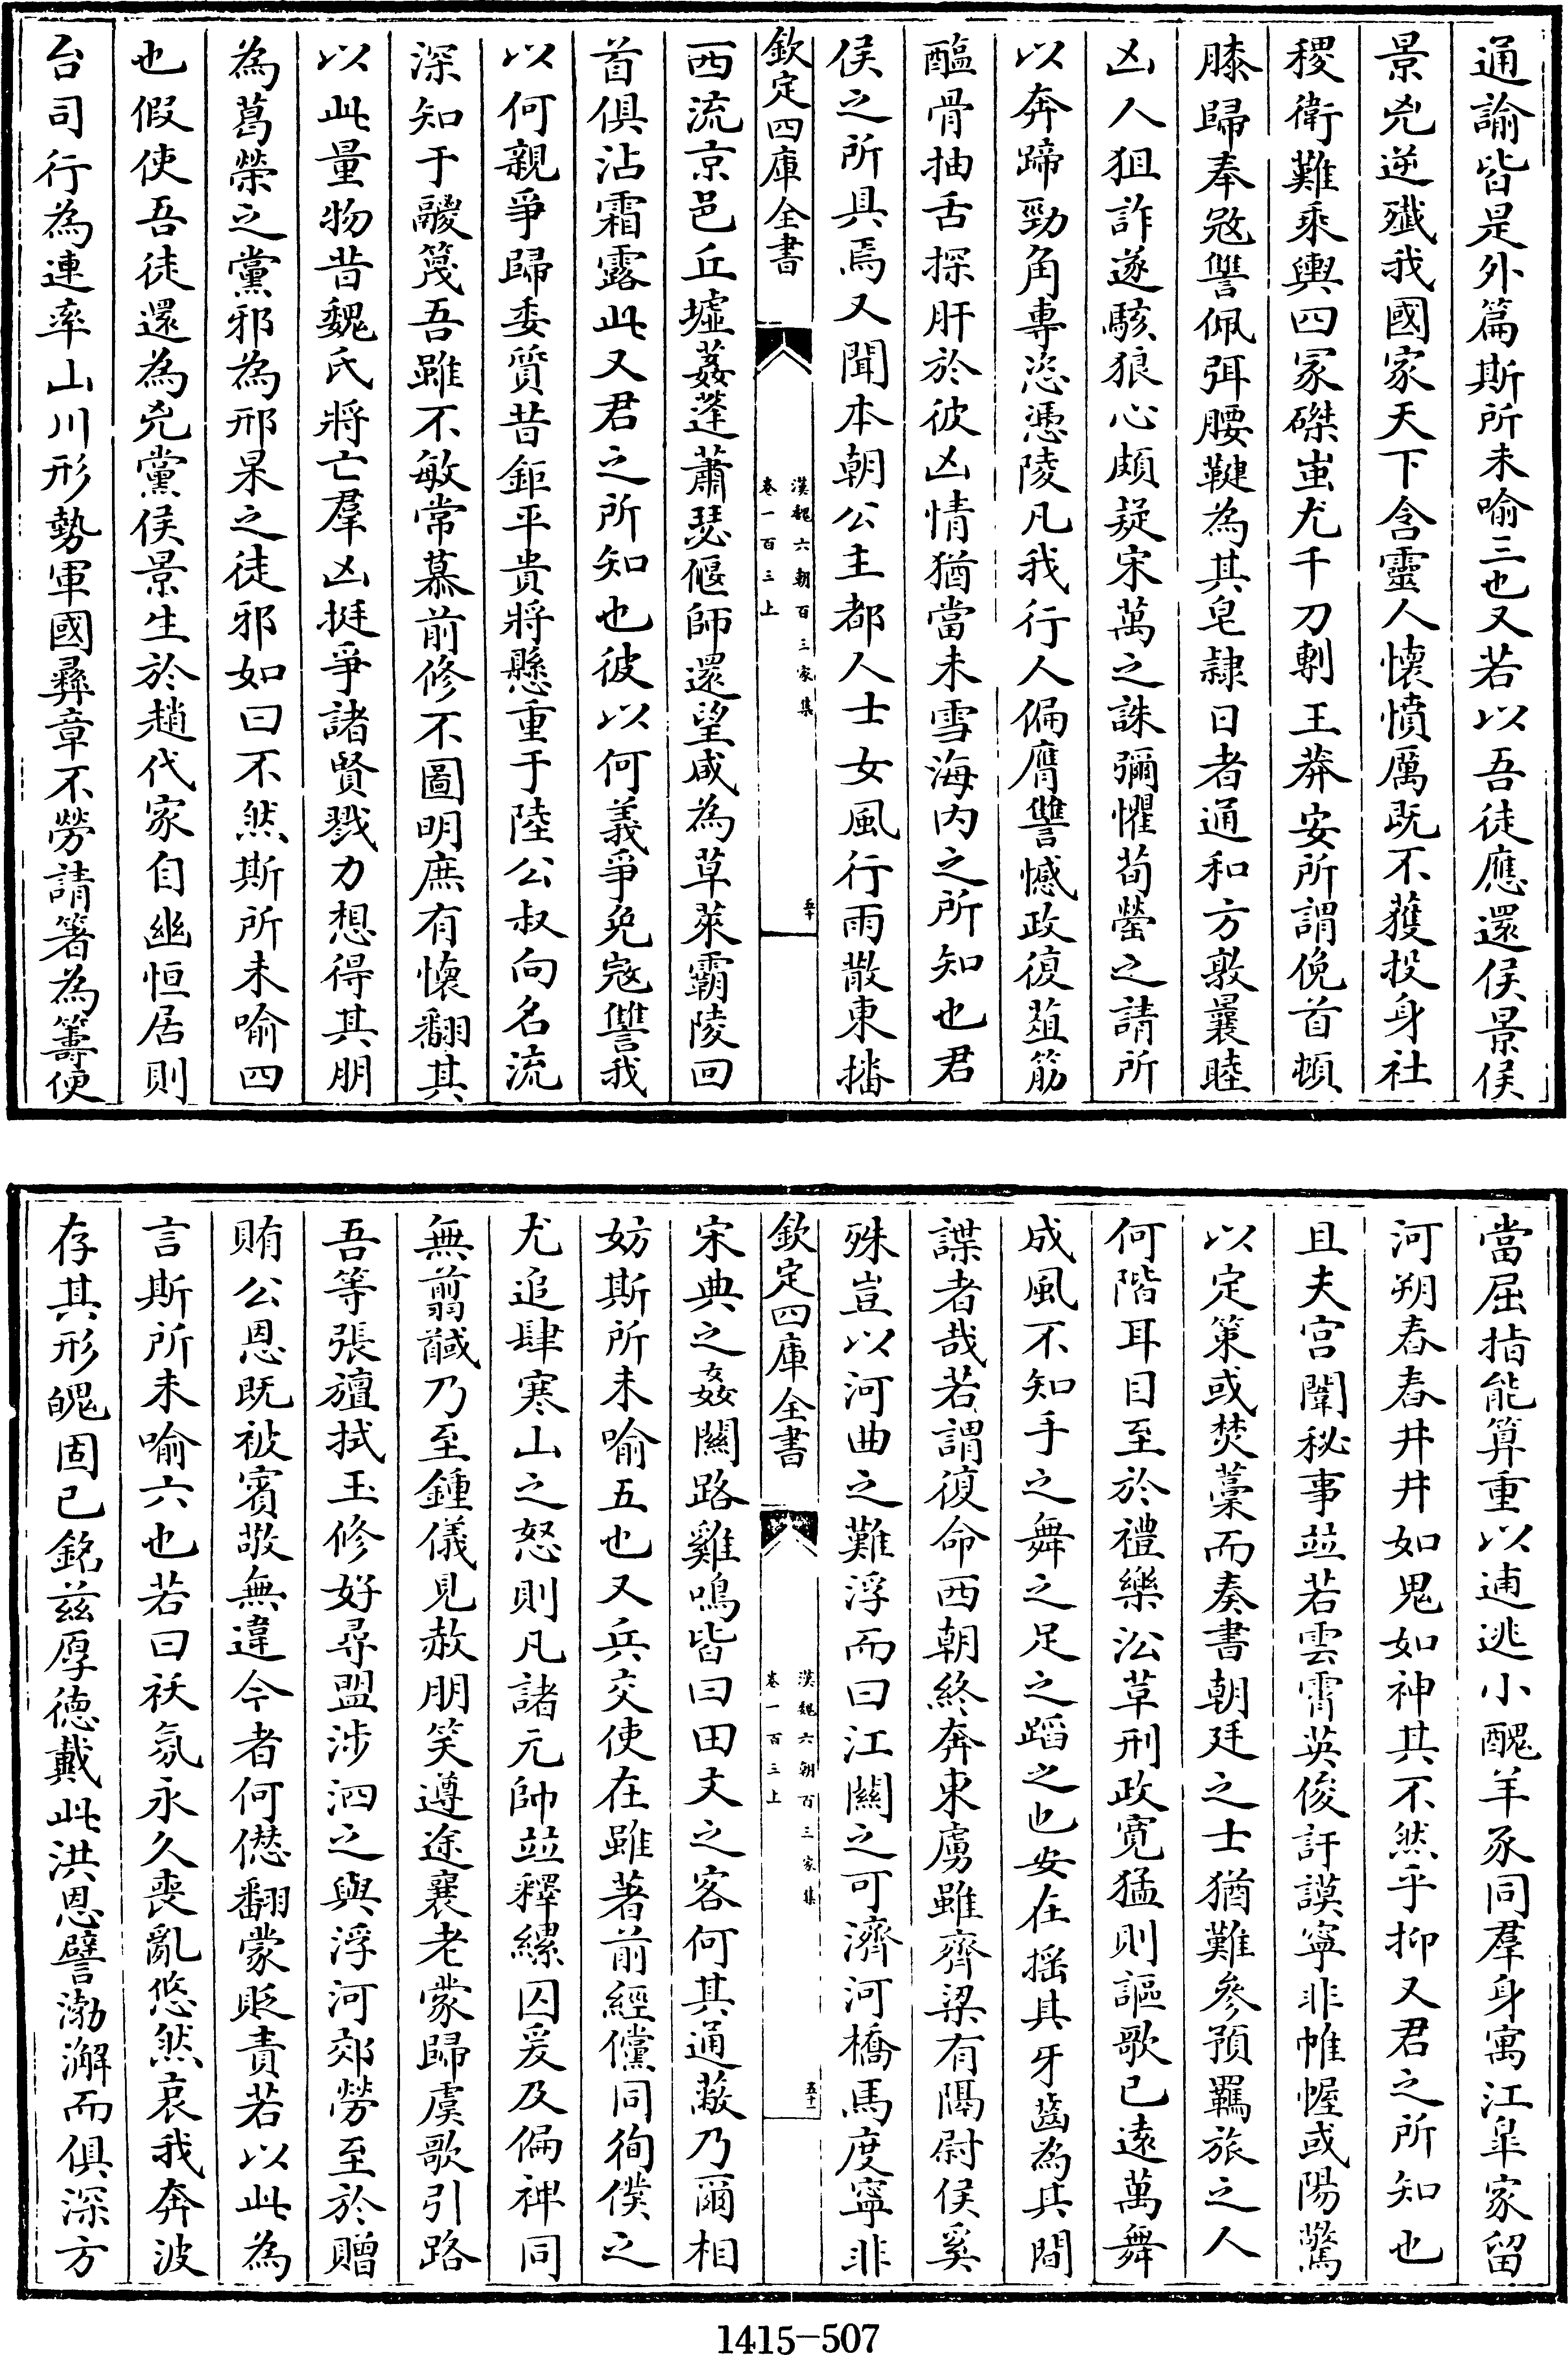 通諭皆是外篇斯所未喻三也又若以吾徒應還侯景侯
景兇逆殲我國家天下含靈人懷憤厲既不獲投身社
稷衛難乘輿四冢磔蚩尤千刀剸王莽安所謂俛首頓
膝歸奉寇讐佩弭腰鞬為其皂隸日者通和方敦曩睦
凶人狙詐遂駭狼心頗疑宋萬之誅彌懼荀罃之請所
以奔蹄勁角專恣憑陵凡我行人偏膺讐憾政復葅筋
醢骨抽舌探肝於彼凶情猶當未雪海内之所知也君
侯之所具焉又聞本朝公主都人士女風行雨散東播
欽定四庫全書
漢魏六朝百三家集
卷一百三上
五十
西流京邑丘墟姦蓬蕭瑟偃師還望咸為草萊霸陵回
首俱沾霜露此又君之所知也彼以何義爭免寇讐我
以何親爭歸委質昔鉅平貴將懸重于陸公叔向名流
深知于鬷篾吾雖不敏常慕前修不圖明庶有懷翻其
以此量物昔魏氏將亡羣凶挺爭諸賢戮力想得其朋
為葛榮之黨邪為邢杲之徒邪如曰不然斯所未喻四
也假使吾徒還為兇黨侯景生於趙代家自幽恒居則
台司行為連率山川形勢軍國彞章不勞請箸為籌便
當屈指能算重以逋逃小醜羊豕同羣身寓江臯家留
河朔舂舂井井如鬼如神其不然乎抑又君之所知也
且夫宫闈秘事並若雲霄英俊訏謨寧非帷幄或陽驚
以定策或焚藁而奏書朝廷之士猶難參預羈旅之人
何階耳目至於禮樂㳂草刑政寛猛則謳歌已遠萬舞
成風不知手之舞之足之蹈之也安在摇其牙齒為其間
諜者哉若謂復命西朝終奔東虜雖齊梁有隔尉侯奚
殊豈以河曲之難浮而曰江關之可濟河橋馬度寧非
欽定四庫全書
漢魏六朝百三家集
卷一百三上
五十一
宋典之姦關路雞鳴皆曰田文之客何其通蔽乃爾相
妨斯所未喻五也又兵交使在雖著前經儻同徇僕之
尤追肆寒山之怒則凡諸元帥並釋縲囚爰及偏裨同
無翦馘乃至鍾儀見赦朋笑遵途襄老蒙歸虞歌引路
吾等張旜拭玉修好尋盟涉泗之與浮河郊勞至於贈
賄公恩既被賓敬無違今者何僁翻蒙貶責若以此為
言斯所未喻六也若曰袄氛永久喪亂悠然哀我奔波
存其形魄固已銘兹厚德戴此洪恩譬渤澥而俱深方
1415—507